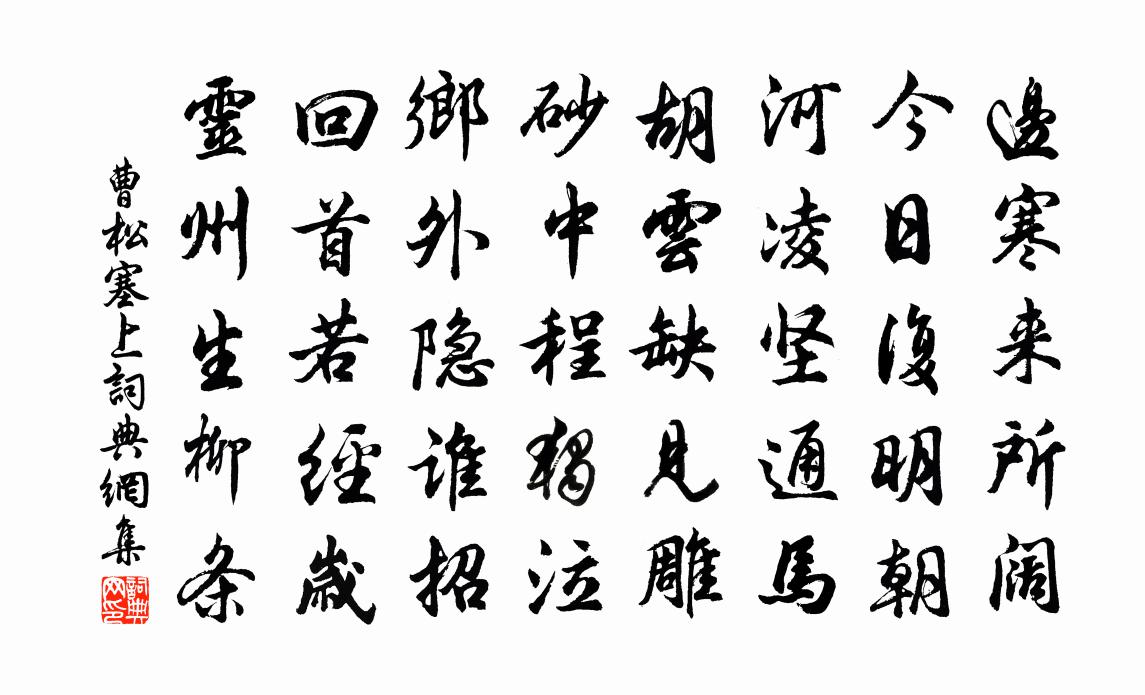 邊寒来所阔
今日復明朝
河凌坚通馬
胡雲缺見雕
砂中程獨泣
鄉外隐谁招
回首若經歲
靈州生柳条
曹松塞上詞典網集